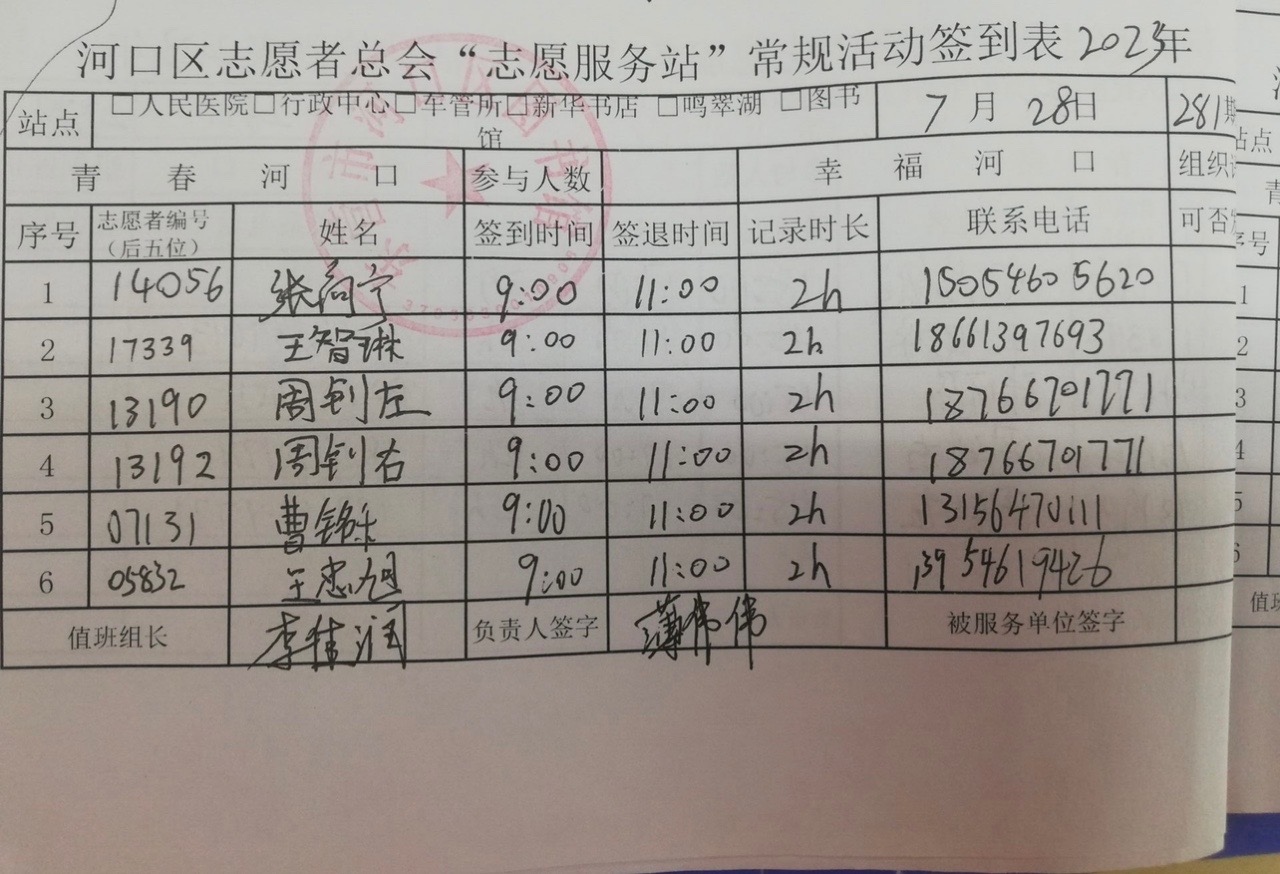 河口区志愿者总会“志愿服务站”常规活动签到表2023年
站点 □人民医院□行政中心□车管所□新华书店 □鸣翠湖 □图书馆 7月28日 281期
青春河口 参与人数 幸福河口 组织
序号 志愿者编号（后五位） 姓名 签到时间 签退时间 记录时长 联系电话 可否
1 14056 张尚宁 9:00 11:00 2h 15054605620
2 17339 王智琳 9:00 11:00 2h 18661397693
3 13190 周钊左 9:00 11:00 2h 18766701771
4 13192 周钊右 9:00 11:00 2h 18766701771
5 07131 曹铭 9:00 11:00 2h 13156470111
6 05832 王忠旭 9:00 11:00 2h 13954619426
值班组长 李佳润 负责人签字 薄伟伟 被服务单位签字
站点
序号
1
2
3
4
5
6